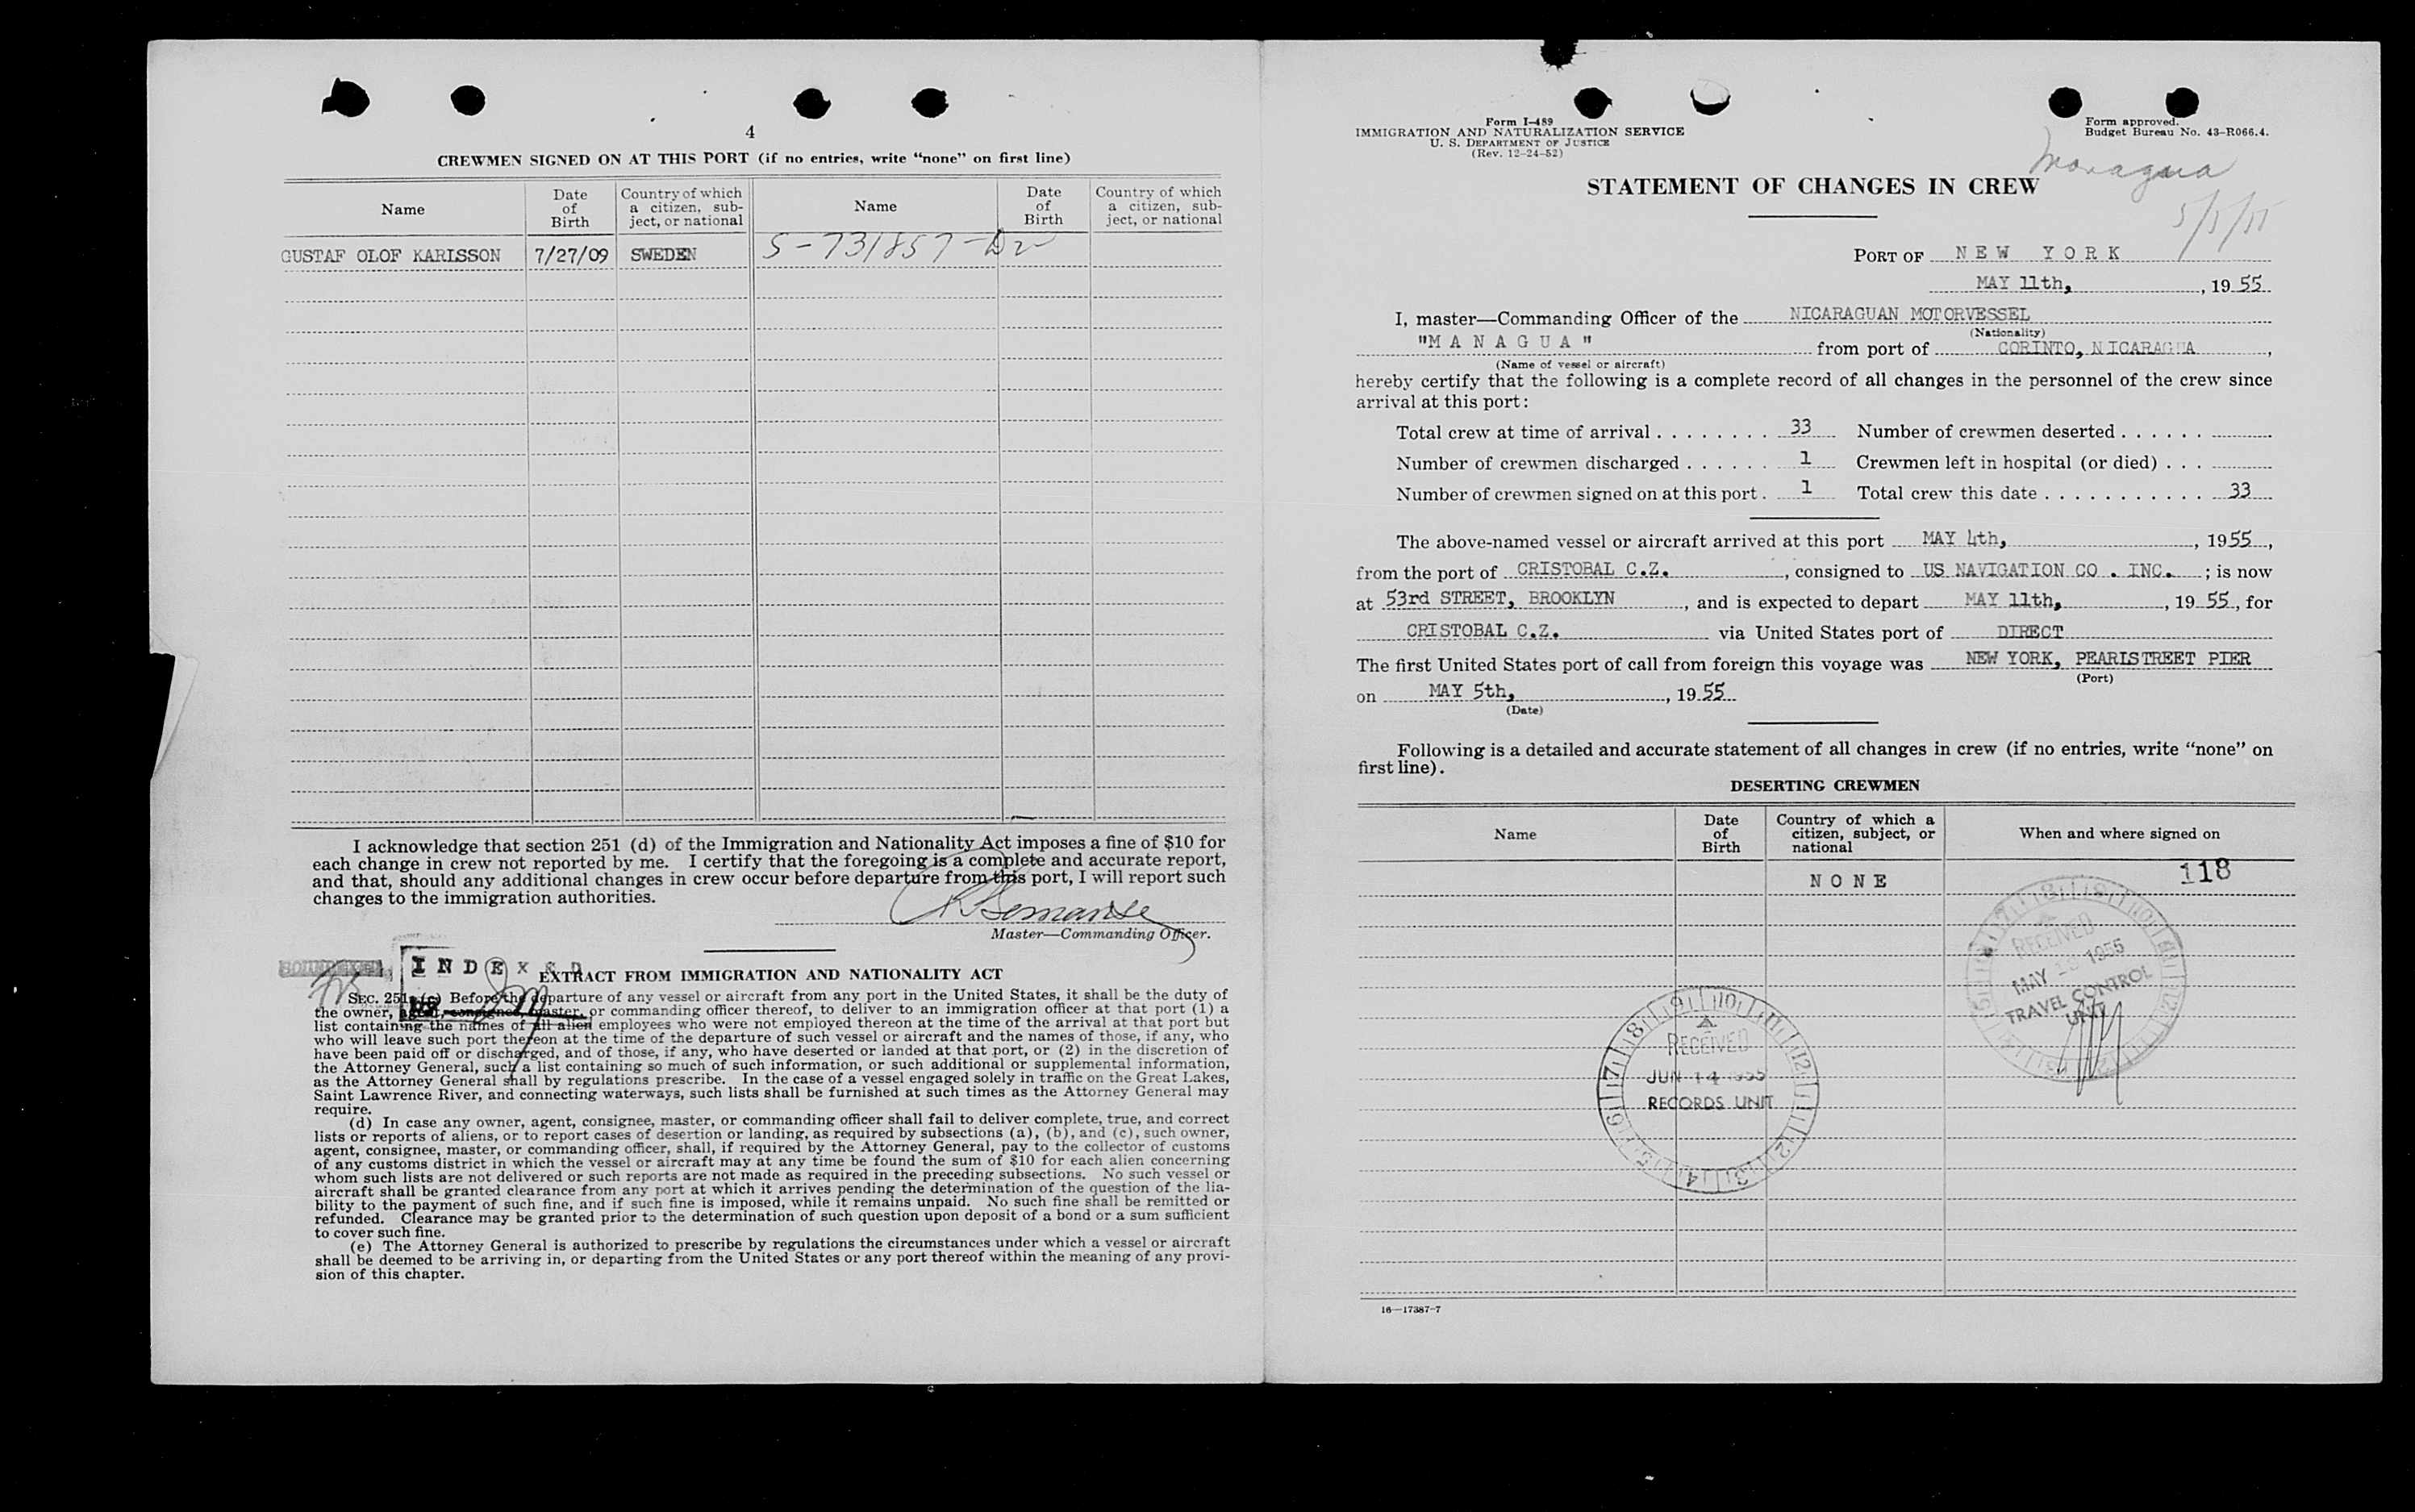 4
CREWMEN SIGNED ON AT THIS PORT (if no entries, write “none” on first line)
Name
Date of Birth
Country of which a citizen, subject, or national
Name
Date of Birth
Country of which a citizen, subject, or national
GUSTAF OLOF KARLSSON 7/27/09 SWEDEN S-731857
I acknowledge that section 251 (d) of the Immigration and Nationality Act imposes a fine of $10 for
each change in crew not reported by me. I certify that the foregoing is a complete and accurate report,
and that, should any additional changes in crew occur before departure from this port, I will report such
changes to the immigration authorities.
Master—Commanding Officer.
INDEXED
EXTRACT FROM IMMIGRATION AND NATIONALITY ACT
SEC. 251. (c) Before the departure of any vessel or aircraft from any port in the United States, it shall be the duty of
the owner, agent, consignee, master, or commanding officer thereof, to deliver to an immigration officer at that port (1) a
list containing the names of all alien employees who were not employed thereon at the time of the arrival at that port but
who will leave such port thereon at the time of the departure of such vessel or aircraft and the names of those, if any, who
have been paid off or discharged, and of those, if any, who have deserted or landed at that port, or (2) in the discretion of
the Attorney General, such a list containing so much of such information, or such additional or supplemental information,
as the Attorney General shall by regulations prescribe. In the case of a vessel engaged solely in traffic on the Great Lakes,
Saint Lawrence River, and connecting waterways, such lists shall be furnished at such times as the Attorney General may
require.
(d) In case any owner, agent, consignee, master, or commanding officer shall fail to deliver complete, true, and correct
lists or reports of aliens, or to report cases of desertion or landing, as required by subsections (a), (b), and (c), such owner,
agent, consignee, master, or commanding officer, shall, if required by the Attorney General, pay to the collector of customs
of any customs district in which the vessel or aircraft may at any time be found the sum of $10 for each alien concerning
whom such lists are not delivered or such reports are not made as required in the preceding subsections. No such vessel or
aircraft shall be granted clearance from any port at which it arrives pending the determination of the question of the lia-
bility to the payment of such fine, and if such fine is imposed, while it remains unpaid. No such fine shall be remitted or
refunded. Clearance may be granted prior to the determination of such question upon deposit of a bond or a sum sufficient
to cover such fine.
(e) The Attorney General is authorized to prescribe by regulations the circumstances under which a vessel or aircraft
shall be deemed to be arriving in, or departing from the United States or any port thereof within the meaning of any provi-
sion of this chapter.
Form I-489
IMMIGRATION AND NATURALIZATION SERVICE
U. S. DEPARTMENT OF JUSTICE
(Rev. 12-24-52)
Form approved.
Budget Bureau No. 43-R066.4.
Managua
STATEMENT OF CHANGES IN CREW
PORT OF NEW YORK
MAY 11th, , 19 55
I, master—Commanding Officer of the NICARAGUAN MOTORVESSEL
(Nationality)
"MANAGUA" from port of CORINTO, NICARAGUA ,
(Name of vessel or aircraft)
hereby certify that the following is a complete record of all changes in the personnel of the crew since
arrival at this port:
Total crew at time of arrival 33 Number of crewmen deserted
Number of crewmen discharged 1 Crewmen left in hospital (or died)
Number of crewmen signed on at this port 1 Total crew this date 33
The above-named vessel or aircraft arrived at this port MAY 4th, , 1955,
from the port of CRISTOBAL C.Z. , consigned to US NAVIGATION CO . INC. ; is now
at 53rd STREET, BROOKLYN , and is expected to depart MAY 11th, , 19 55, for
CRISTOBAL C.Z. via United States port of DIRECT
The first United States port of call from foreign this voyage was NEW YORK, PEARLSTREET PIER
(Port)
on MAY 5th, , 19 55
(Date)
Following is a detailed and accurate statement of all changes in crew (if no entries, write “none” on
first line).
DESERTING CREWMEN
Name
Date of Birth
Country of which a citizen, subject, or national
When and where signed on
NONE
118
RECEIVED
MAY 1955
TRAVEL CONTROL
UNIT
RECEIVED
JUN 14 1955
RECORDS UNIT
16—17387-7